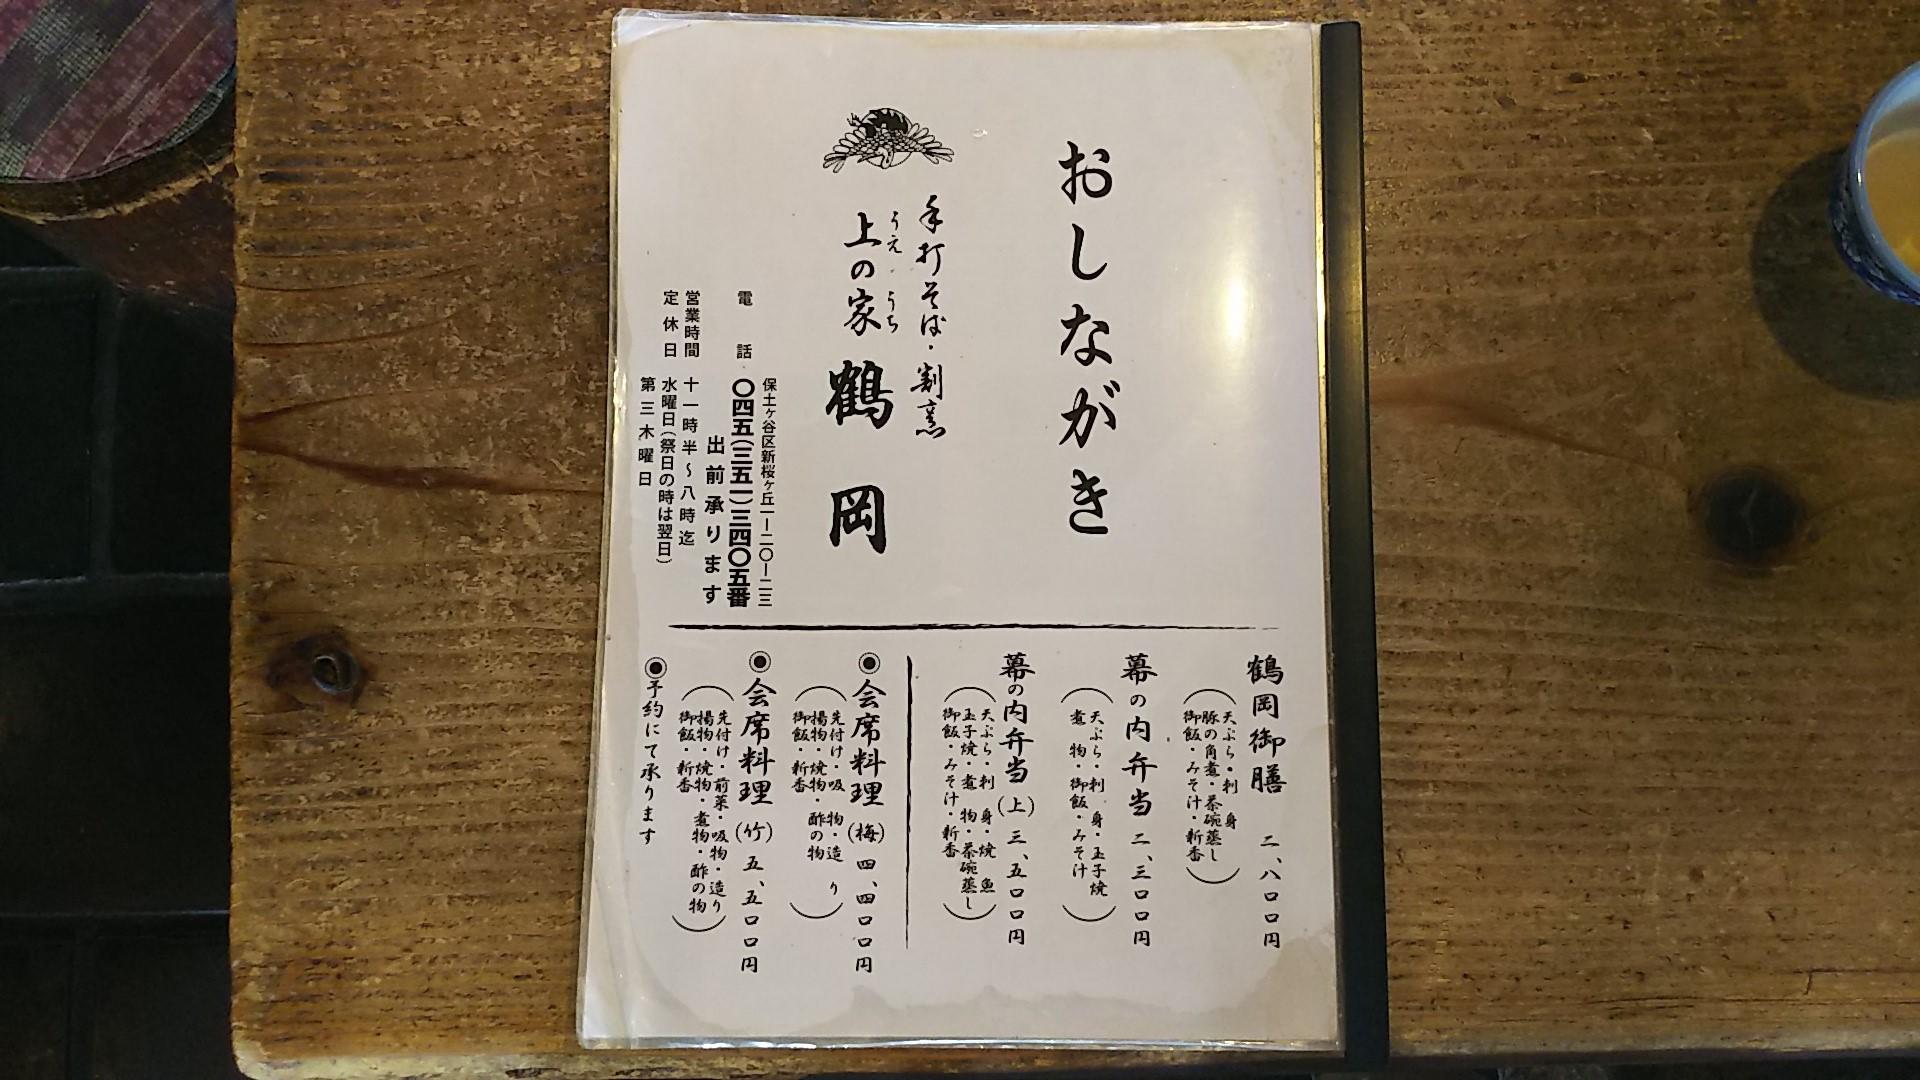 おしながき
手打そば・割烹
うえ うち
上の家 鶴岡
保土ヶ谷区新桜ヶ丘一ー二〇ー二三
電話 〇四五(三五一)三四〇五番
出前承ります
営業時間 十一時半~八時迄
定休日 水曜日(祭日の時は翌日)
第三木曜日
鶴岡御膳 二、八〇〇円
(天ぷら・刺身
豚の角煮・茶碗蒸し
御飯・みそ汁・新香)
幕の内弁当 二、三〇〇円
(天ぷら・刺身・玉子焼
煮物・御飯・みそ汁)
幕の内弁当(上) 三、五〇〇円
(天ぷら・刺身・焼魚
玉子焼・煮物・茶碗蒸し
御飯・みそ汁・新香)
◉会席料理(梅) 四、四〇〇円
(先付け・吸物・造り
揚物・焼物・酢の物
御飯・新香)
◉会席料理(竹) 五、五〇〇円
(先付け・前菜・吸物・造り
揚物・焼物・煮物・酢の物
御飯・新香)
◉予約にて承ります